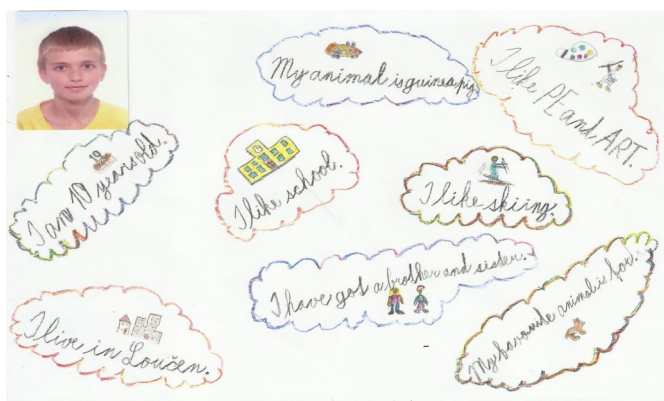 My animal is guinea pig.
I like PE and ART.
I am 10 years old.
I like school.
I like skiing.
I have got a brother and sister.
I live in Loučen.
My favourite animal is fox.